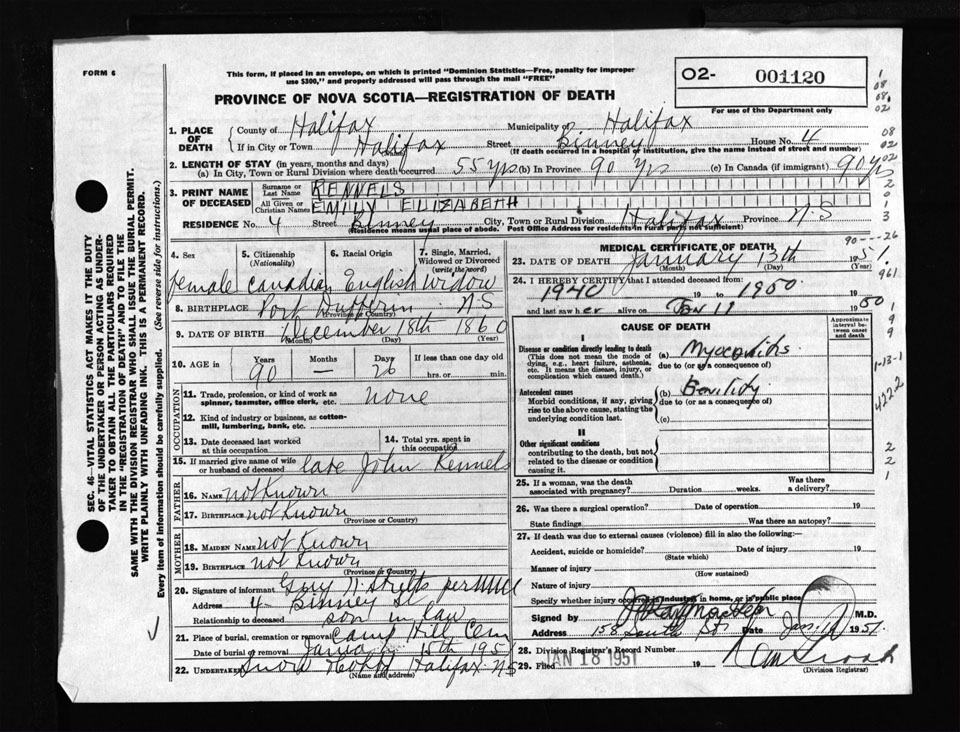 FORM 6
This form, if placed in an envelope, on which is printed "Dominion Statistics—Free, penalty for improper
use $300," and properly addressed will pass through the mail "FREE"
O2- 001120
For use of the Department only
PROVINCE OF NOVA SCOTIA—REGISTRATION OF DEATH
SEC. 46—VITAL STATISTICS ACT MAKES IT THE DUTY
OF THE UNDERTAKER OR PERSON ACTING AS UNDER-
TAKER TO OBTAIN ALL THE PARTICULARS REQUIRED
IN THE "REGISTRATION OF DEATH" AND TO FILE THE
SAME WITH THE DIVISION REGISTRAR WHO SHALL ISSUE THE BURIAL PERMIT.
WRITE PLAINLY WITH UNFADING INK. THIS IS A PERMANENT RECORD.
Every item of information should be carefully supplied. (See reverse side for instructions.)
1. PLACE OF DEATH County of Halifax Municipality of Halifax
If in City or Town Halifax Street Binney House No. 4
(If death occurred in a hospital or institution, give the name instead of street and number)
2. LENGTH OF STAY (in years, months and days)
(a) In City, Town or Rural Division where death occurred 55 yrs (b) In Province 90 yrs (c) In Canada (if immigrant) 90 yrs
3. PRINT NAME OF DECEASED Surname or Last Name KENNELS
All Given or Christian Names EMILY ELIZABETH
RESIDENCE No. 4 Street Binney City, Town or Rural Division Halifax Province N.S
(Residence means usual place of abode. Post Office Address for residents in rural parts not sufficient)
4. Sex 5. Citizenship (Nationality) 6. Racial Origin 7. Single, Married, Widowed or Divorced (write the word)
Female Canadian English Widow
8. BIRTHPLACE Port Dufferin N.S
(Province or Country)
9. DATE OF BIRTH December 18th 1860
(Month) (Day) (Year)
10. AGE in Years Months Days If less than one day old
90 — 26 hrs. or min.
OCCUPATION
11. Trade, profession, or kind of work as spinner, teamster, office clerk, etc. none
12. Kind of industry or business, as cotton-mill, lumbering, bank, etc.
13. Date deceased last worked at this occupation
14. Total yrs. spent in this occupation
15. If married give name of wife or husband of deceased late John Kennels
FATHER
16. NAME not known
17. BIRTHPLACE not known
(Province or Country)
MOTHER
18. MAIDEN NAME not known
19. BIRTHPLACE not known
(Province or Country)
20. Signature of informant
Address 4 Binney St
Relationship to deceased son in law
21. Place of burial, cremation or removal Camp Hill Cem
Date of burial or removal January 15th 1951
22. Undertaker Snow Halifax NS
(Name and address)
MEDICAL CERTIFICATE OF DEATH
23. DATE OF DEATH January 13th 1951
(Month) (Day) (Year)
24. I HEREBY CERTIFY that I attended deceased from:
1940 19 to 1950 19
and last saw her alive on Jan 11 1950
CAUSE OF DEATH
Approximate interval between onset and death
I
Disease or condition directly leading to death
(This does not mean the mode of dying, e.g., heart failure, asthenia, etc. It means the disease, injury, or complication which caused death.)
(a) Myocarditis
due to (or as a consequence of)
Antecedent causes
Morbid conditions, if any, giving rise to the above cause, stating the underlying condition last.
(b) Senility
due to (or as a consequence of)
(c)
II
Other significant conditions
contributing to the death, but not related to the disease or condition causing it.
25. If a woman, was the death associated with pregnancy? Duration weeks. Was there a delivery?
26. Was there a surgical operation? Date of operation 19
State findings Was there an autopsy?
27. If death was due to external causes (violence) fill in also the following:—
Accident, suicide or homicide? Date of injury 19
(State which)
Manner of injury
(How sustained)
Nature of injury
Specify whether injury occurred in industry, in home, or in public place
Signed by M.D.
Address 158 South St Date Jan. 1951
28. Division Registrar's Record Number
29. Filed JAN 18 1951 19
(Division Registrar)
90---26
961
1-13-1
4222